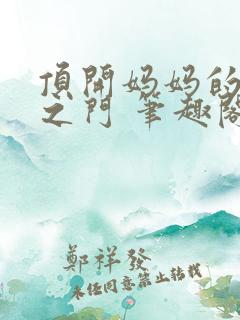 頂開妈妈的
之门 筆趣阁
鄭祥發
未经同意禁止转载